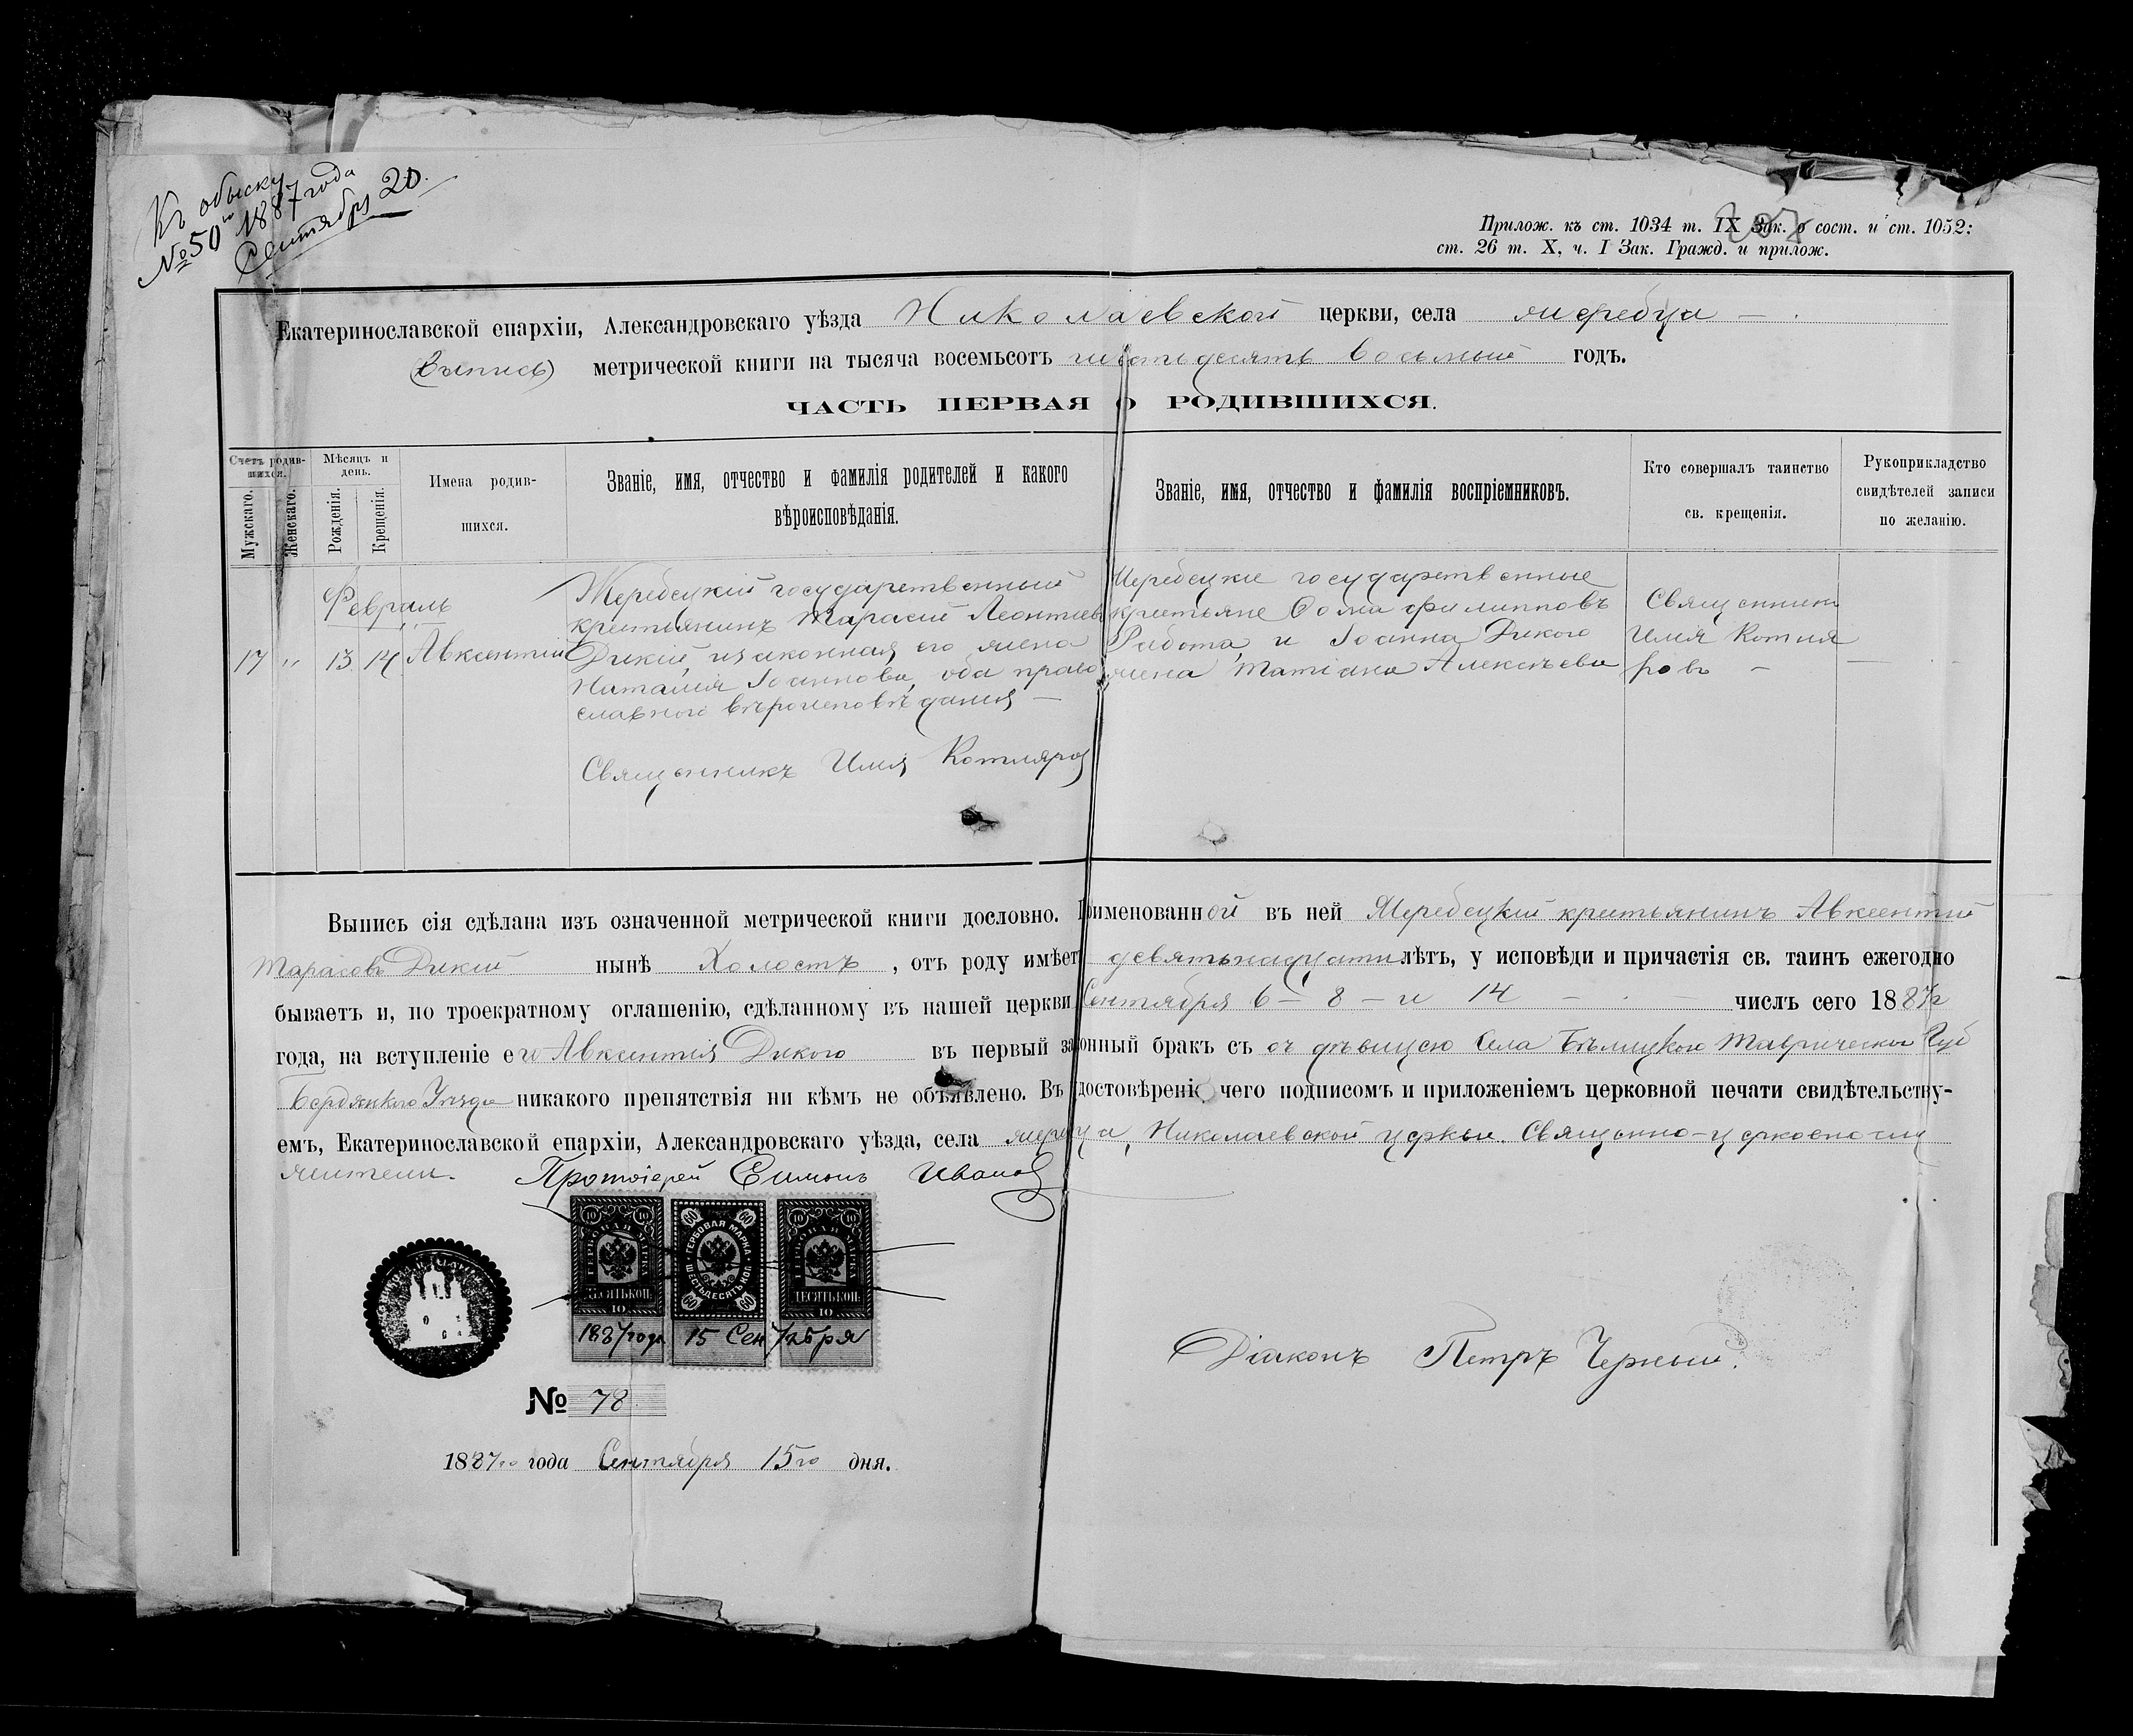 Къ обыску
№ 50 1887 года
Сентября 20.
Прилож. къ ст. 1034 т. IX Зак. о сост. и ст. 1052:
ст. 26 т. X, ч. I Зак. Гражд. и прилож.
Екатеринославской епархіи, Александровскаго уѣзда Николаевской церкви, села жеребца
(выпись) метрической книги на тысяча восемьсотъ шестьдесятъ восьмый годъ.
ЧАСТЬ ПЕРВАЯ О РОДИВШИХСЯ.
Счетъ родив-
шихся.
Мужскаго.
Женскаго.
Мѣсяцъ и
день.
Рожденія.
Крещенія.
Имена родив-
шихся.
Званіе, имя, отчество и фамилія родителей и какого
вѣроисповѣданія.
Званіе, имя, отчество и фамилія воспріемниковъ.
Кто совершалъ таинство
св. крещенія.
Рукоприкладство
свидѣтелей записи
по желанію.
Февраль
17 „ 13 14 Авксентій
Жеребецкій государственный
крестьянинъ Тарасій Леонтиевъ
Дикій, изаконная его жена
Наталія Іоаннова, оба право
славного вѣроисповѣданія —
Священникъ Илія Котляровъ
Жеребецкіе государственные
крестьяне Ѳома Филипповъ
Работа, и Іоанна Дикого
жена Татіана Алексѣева
Священникъ
Илія Котля
ровъ —
Выпись сія сдѣлана изъ означенной метрической книги дословно. Поименованной въ ней Жеребецкій крестьянинъ Авксентій
Тарасовъ Дикій нынѣ Холостъ, отъ роду имѣетъ девятьнадцати лѣтъ, у исповѣди и причастія св. таинъ ежегодно
бываетъ и, по троекратному оглашенію, сдѣланному въ нашей церкви Сентября 6 – 8 – и 14 — числъ сего 1887 г
года, на вступленіе его Авксентія Дикого въ первый законный бракъ съ съ дѣвицею Села Бѣлицкого Таврической Губ
Бердянского Уѣзда никакого препятствія ни кѣмъ не объявлено. Въ удостовѣреніе чего подписомъ и приложеніемъ церковной печати свидѣтельству-
емъ, Екатеринославской епархіи, Александровскаго уѣзда, села жеребца, Николаевской церкви. Священно-церковнослу
жители. Протоіерей Симонъ Иванов
ГЕРБОВАЯ МАРКА
ДЕСЯТЬ КОП.
10
ГЕРБОВАЯ МАРКА
ШЕСТЬДЕСЯТЬ КОП.
60
ГЕРБОВАЯ МАРКА
ДЕСЯТЬ КОП.
10
1887 года 15 Сентября
Діаконъ Петръ Черный.
№ 78.
1887го года Сентября 15го дня.